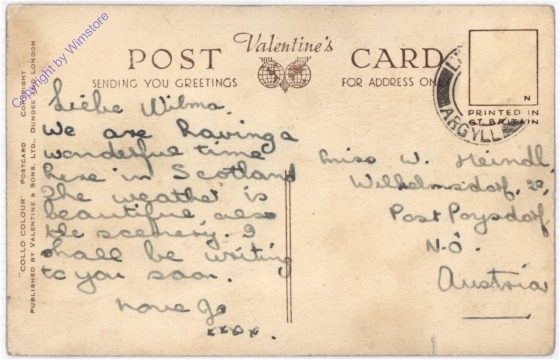 Copyright by Wimstore
POST Valentine's CARD
SENDING YOU GREETINGS
FOR ADDRESS ON
N
PRINTED IN
GT. BRITAIN
ARGYLL
"COLLO COLOUR" POSTCARD COPYRIGHT
PUBLISHED BY VALENTINE & SONS, LTD., DUNDEE AND LONDON
Liebe Wilma.
We are having a
wonderful time
here in Scotland
The weather is
beautiful also
the scenery. I
shall be writing
to you soon.
xxxx.
Miss W. Heindl.
Wilhelmsdorf. 20
Post Poysdorf
N-Ö.
Austria